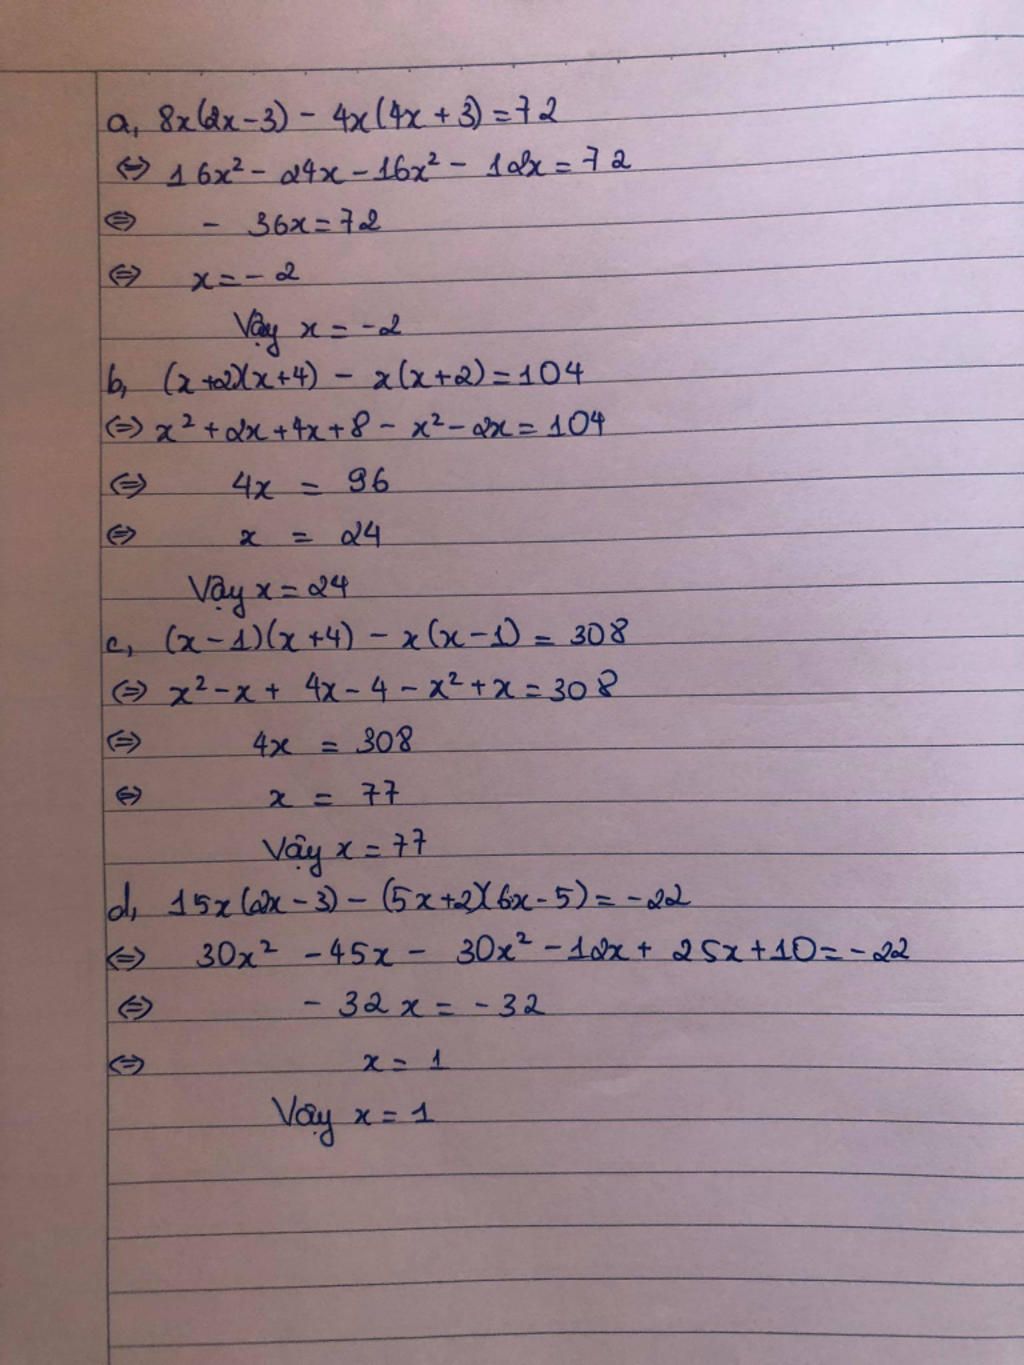 a, 8x(2x-3) - 4x(4x+3)=72
⇔ 16x² - 24x - 16x² - 12x = 72
⇔ - 36x = 72
⇔ x = - 2
Vậy x = -2
b, (x+2)(x+4) - x(x+2) = 104
⇔ x² + 2x + 4x + 8 - x² - 2x = 104
⇔ 4x = 96
⇔ x = 24
Vậy x = 24
c, (x-1)(x+4) - x(x-1) = 308
⇔ x² - x + 4x - 4 - x² + x = 308
⇔ 4x = 308
⇔ x = 77
Vậy x = 77
d, 15x(2x-3) - (5x+2)(6x-5) = -22
⇔ 30x² - 45x - 30x² - 12x + 25x + 10 = -22
⇔ - 32x = -32
⇔ x = 1
Vậy x = 1